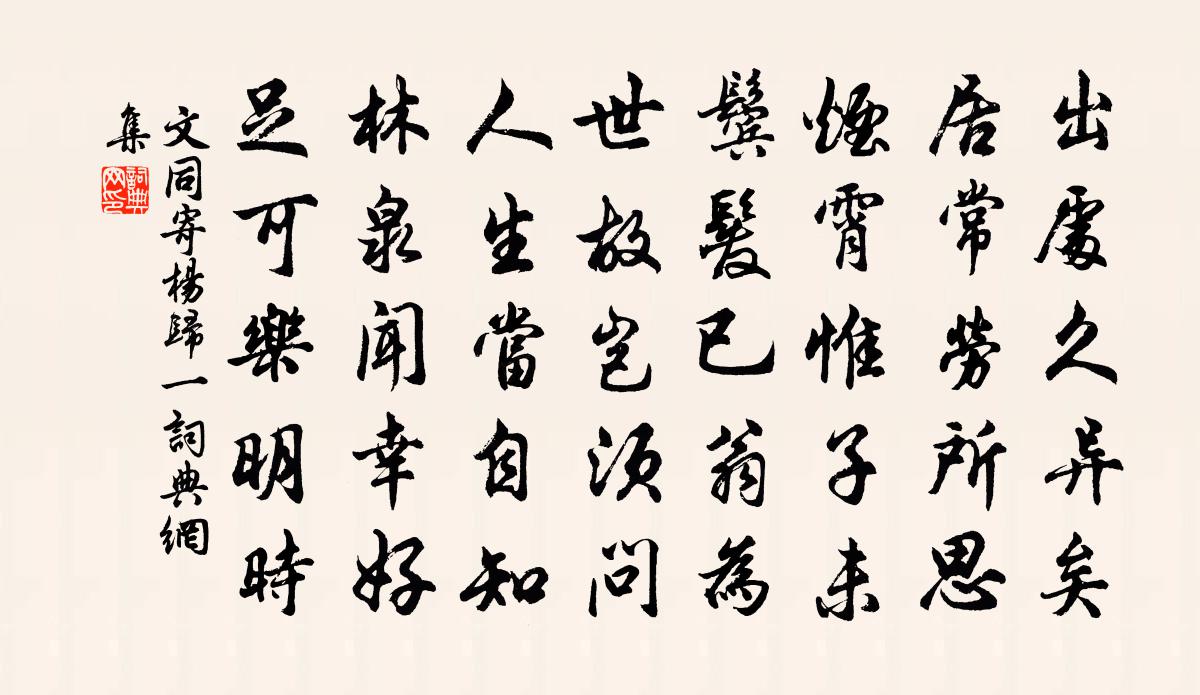 出處久异矣
居常勞所思
煙霄惟子未
鬓髮已翁為
世故豈須問
人生當自知
林泉聞幸好
足可樂明時
文同寄楊歸一詞典網
集
詞典
网印